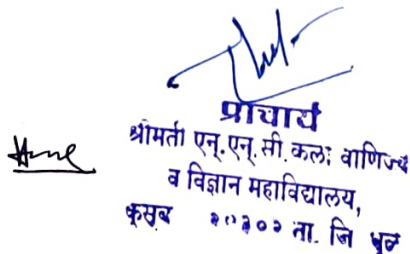 प्राचार्य
श्रीमती एन्.एन्.सी.कला वाणिज्य
व विज्ञान महाविद्यालय,
ता. जि